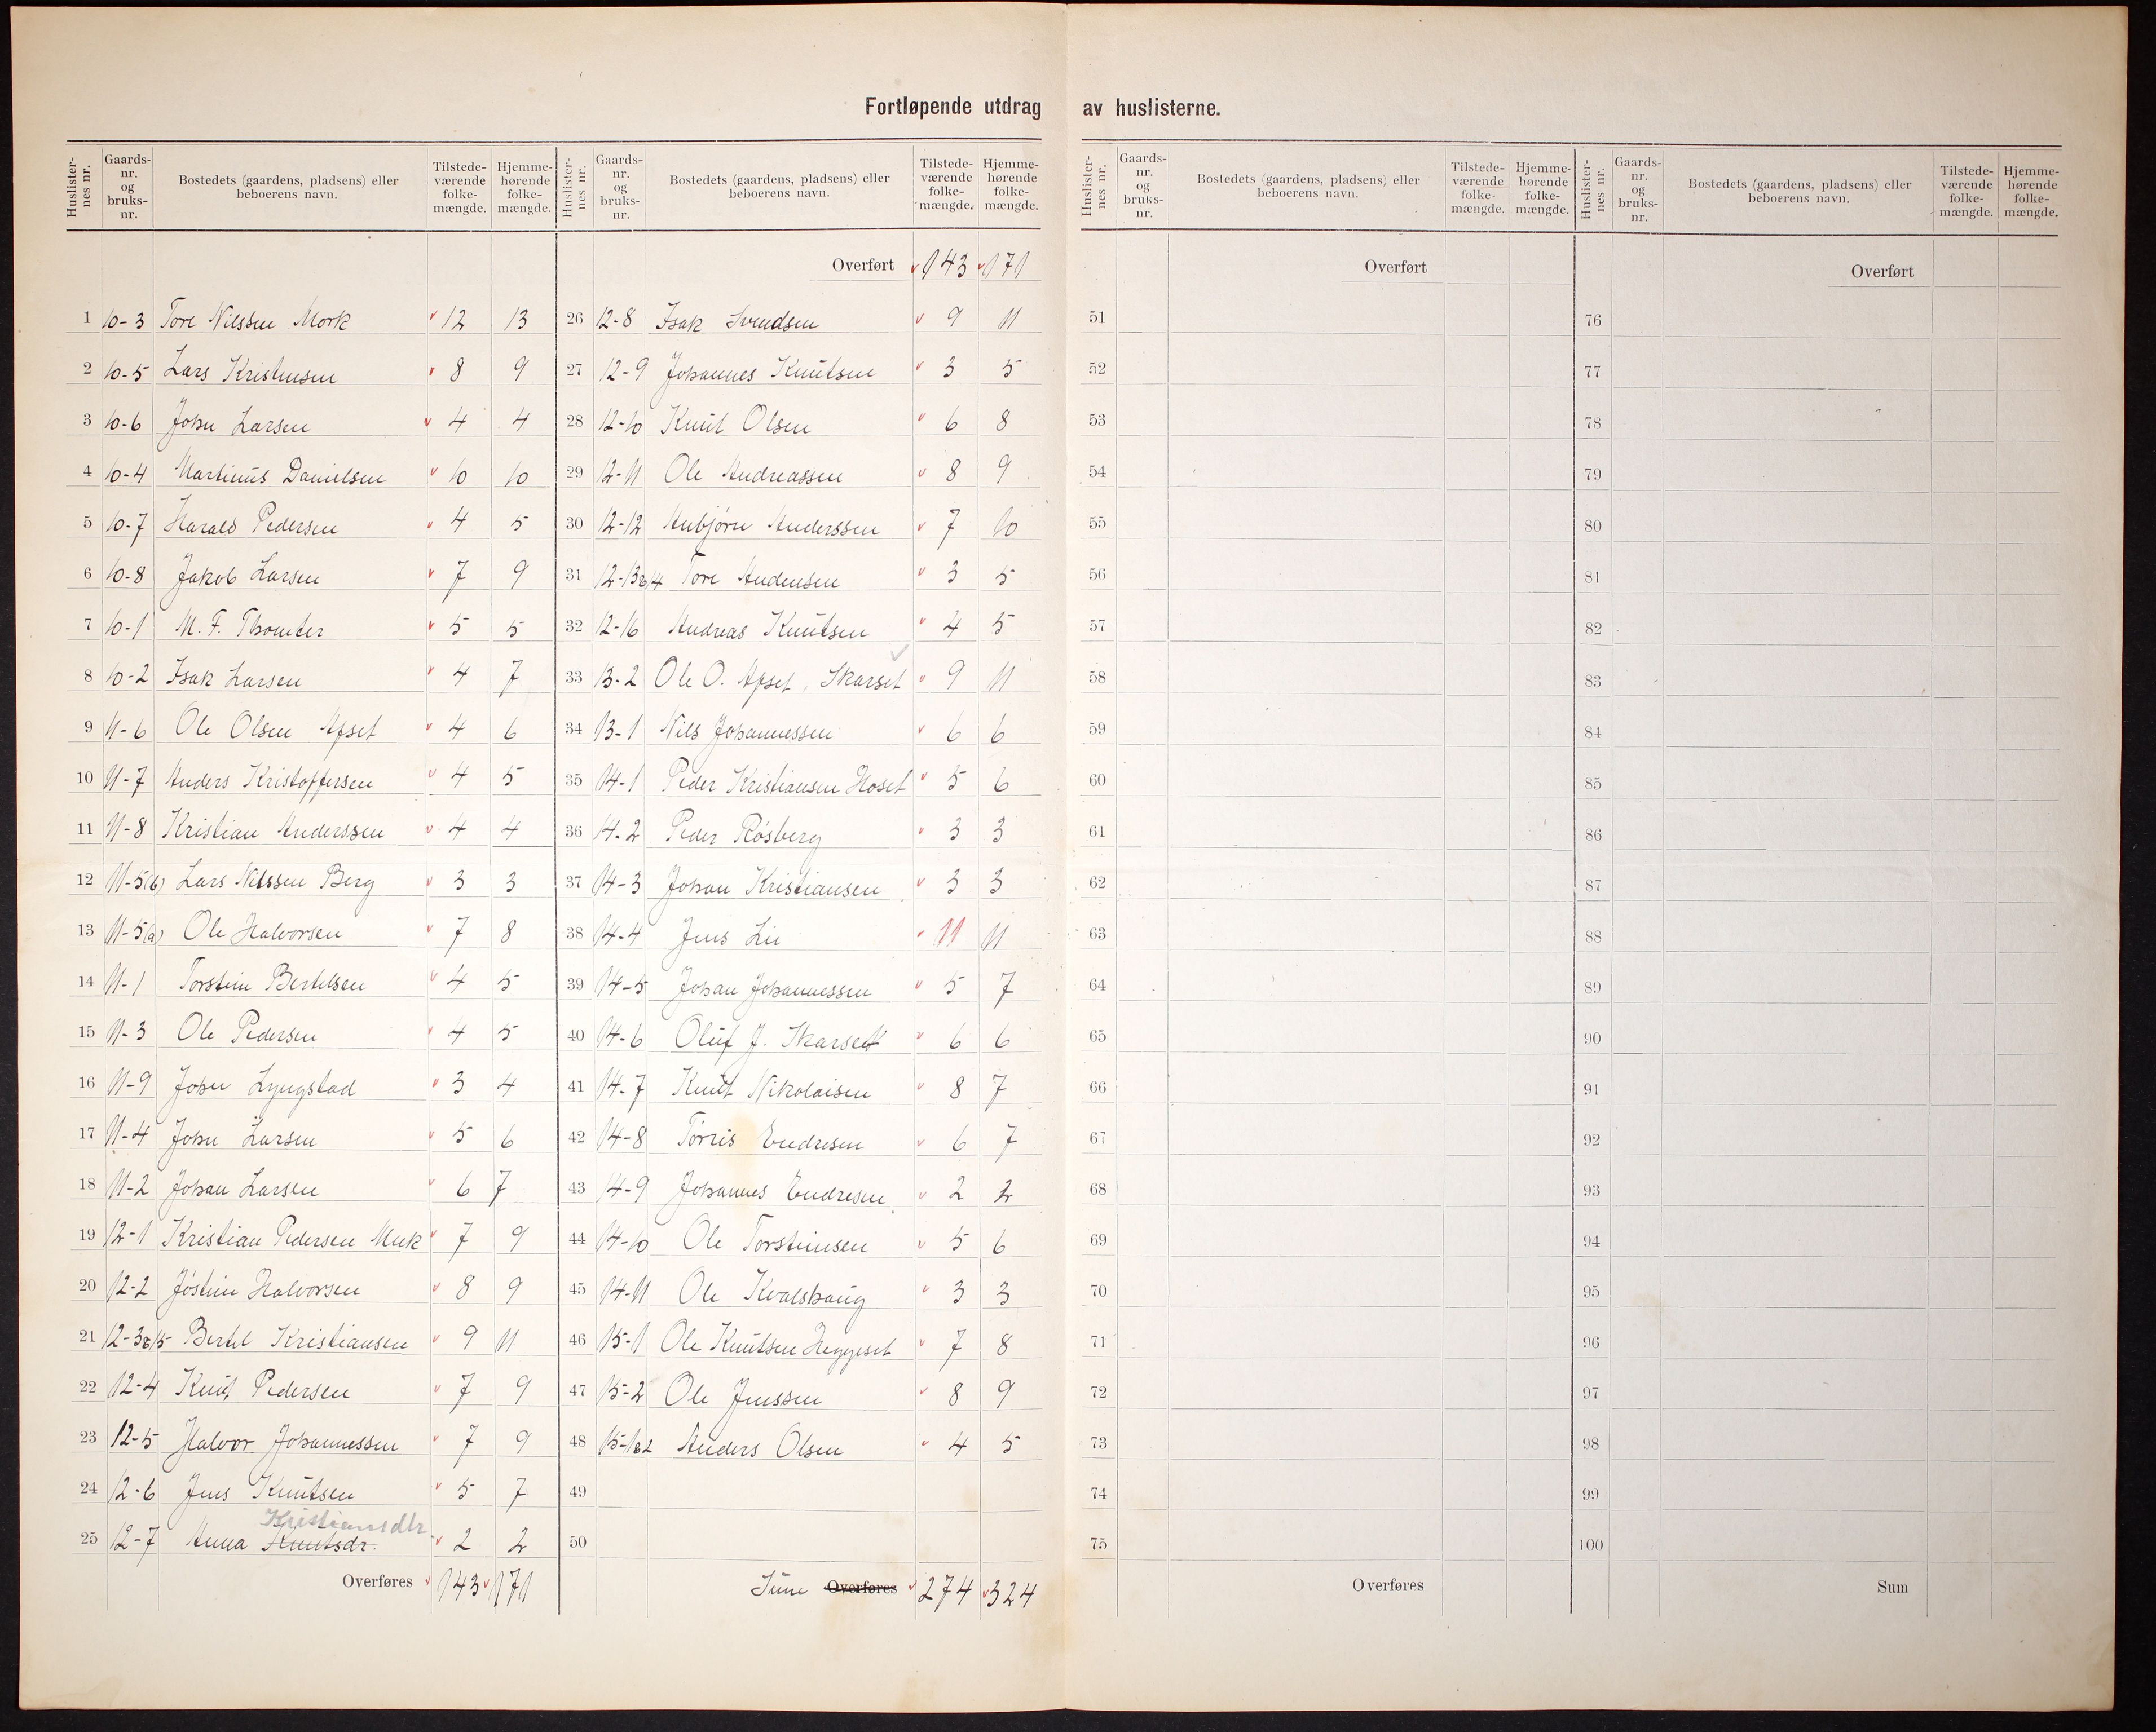 Fortløpende utdrag av huslisterne.
Huslister-nes nr. Gaards-nr. og bruks-nr. Bostedets (gaardens, pladsens) eller beboerens navn. Tilstede-værende folke-mængde. Hjemme-hørende folke-mængde.
1 10-3 Tore Nilssen Mork 12 13
2 10-5 Lars Kristensen 8 9
3 10-6 John Larsen 4 4
4 10-4 Martinus Danielsen 10 10
5 10-7 Harald Pedersen 4 5
6 10-8 Jakob Larsen 7 9
7 10-1 M. F. Thomter 5 5
8 10-2 Isak Larsen 4 7
9 11-6 Ole Olsen Apset 4 6
10 11-7 Anders Kristoffersen 4 5
11 11-8 Kristian Anderssen 4 4
12 11-5(b) Lars Nilssen Berg 3 3
13 11-5(a) Ole Halvorsen 7 8
14 11-1 Torstein Bertelsen 4 5
15 11-3 Ole Pedersen 4 5
16 11-9 John Lyngstad 3 4
17 11-4 John Larsen 5 6
18 11-2 Johan Larsen 6 7
19 12-1 Kristian Pedersen Meek 7 9
20 12-2 Jöstein Halvorsen 8 9
21 12-3&15 Bertel Kristiansen 9 11
22 12-4 Knut Pedersen 7 9
23 12-5 Halvor Johannessen 7 9
24 12-6 Jens Knutsen 5 7
Kristiansdtr.
25 12-7 Anna Knutsdr. 2 2
Overføres 143 171
Huslister-nes nr. Gaards-nr. og bruks-nr. Bostedets (gaardens, pladsens) eller beboerens navn. Tilstede-værende folke-mængde. Hjemme-hørende folke-mængde.
Overført 143 171
26 12-8 Isak Svendsen 9 11
27 12-9 Johannes Knutsen 3 5
28 12-10 Knut Olsen 6 8
29 12-11 Ole Andreassen 8 9
30 12-12 Anbjörn Anderssen 7 10
31 12-13&14 Tore Andersen 3 5
32 12-16 Andreas Knutsen 4 5
33 13-2 Ole O. Apset, Skarset 9 11
34 13-1 Nils Johannessen 6 6
35 14-1 Peder Kristiansen Hoset 5 6
36 14-2 Peder Rösberg 3 3
37 14-3 Johan Kristiansen 3 3
38 14-4 Jens Lie 11 11
39 14-5 Johan Johannessen 5 7
40 14-6 Oluf J. Skarset 6 6
41 14-7 Knut Nikolaisen 8 7
42 14-8 Törris Endresen 6 7
43 14-9 Johannes Endresen 2 2
44 14-10 Ole Torsteinsen 5 6
45 14-11 Ole Kvalshaug 3 3
46 15-1 Ole Knutsen Heggeset 7 8
47 15-2 Ole Jenssen 8 9
48 15-1&2 Anders Olsen 4 5
49
50
Sum Overføres 274 324
Huslister-nes nr. Gaards-nr. og bruks-nr. Bostedets (gaardens, pladsens) eller beboerens navn. Tilstede-værende folke-mængde. Hjemme-hørende folke-mængde.
Overført
51
52
53
54
55
56
57
58
59
60
61
62
63
64
65
66
67
68
69
70
71
72
73
74
75
Overføres
Huslister-nes nr. Gaards-nr. og bruks-nr. Bostedets (gaardens, pladsens) eller beboerens navn. Tilstede-værende folke-mængde. Hjemme-hørende folke-mængde.
Overført
76
77
78
79
80
81
82
83
84
85
86
87
88
89
90
91
92
93
94
95
96
97
98
99
100
Sum